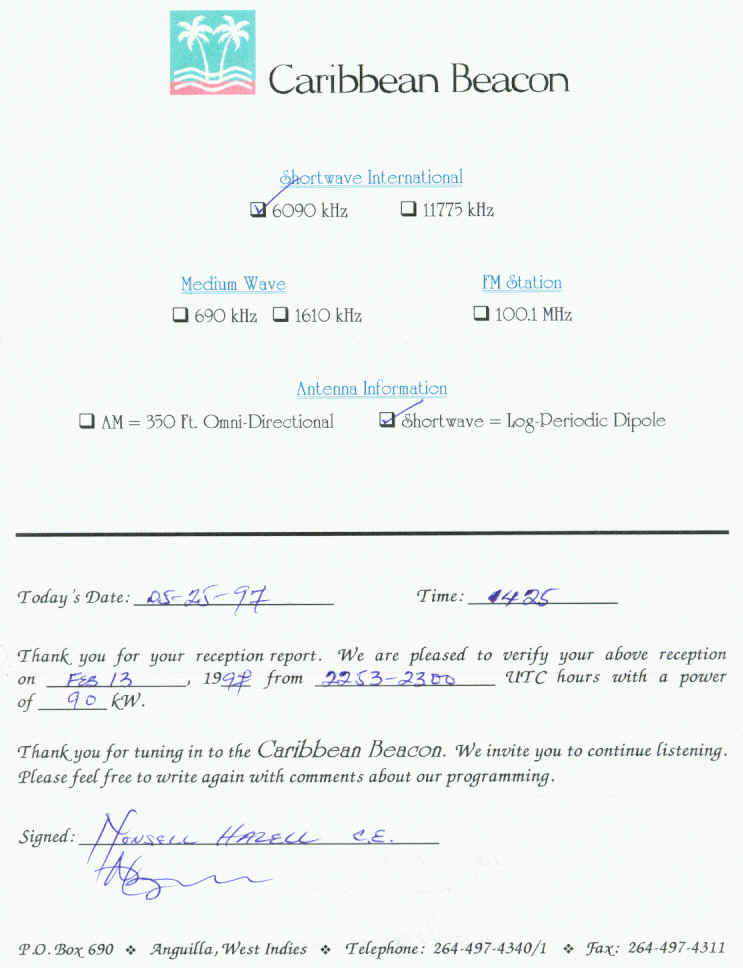 Caribbean Beacon
Shortwave International
6090 kHz 11775 kHz
Medium Wave FM Station
690 kHz 1610 kHz 100.1 MHz
Antenna Information
AM = 350 Ft. Omni-Directional Shortwave = Log-Periodic Dipole
Today's Date: 05-25-97 Time: 1425
Thank you for your reception report. We are pleased to verify your above reception
on FEB 13, 1997 from 2253-2300 UTC hours with a power
of 90 kW.
Thank you for tuning in to the Caribbean Beacon. We invite you to continue listening.
Please feel free to write again with comments about our programming.
Signed: MONSELL HAZELL C.E.
P.O. Box 690 ❖ Anguilla, West Indies ❖ Telephone: 264-497-4340/1 ❖ Fax: 264-497-4311